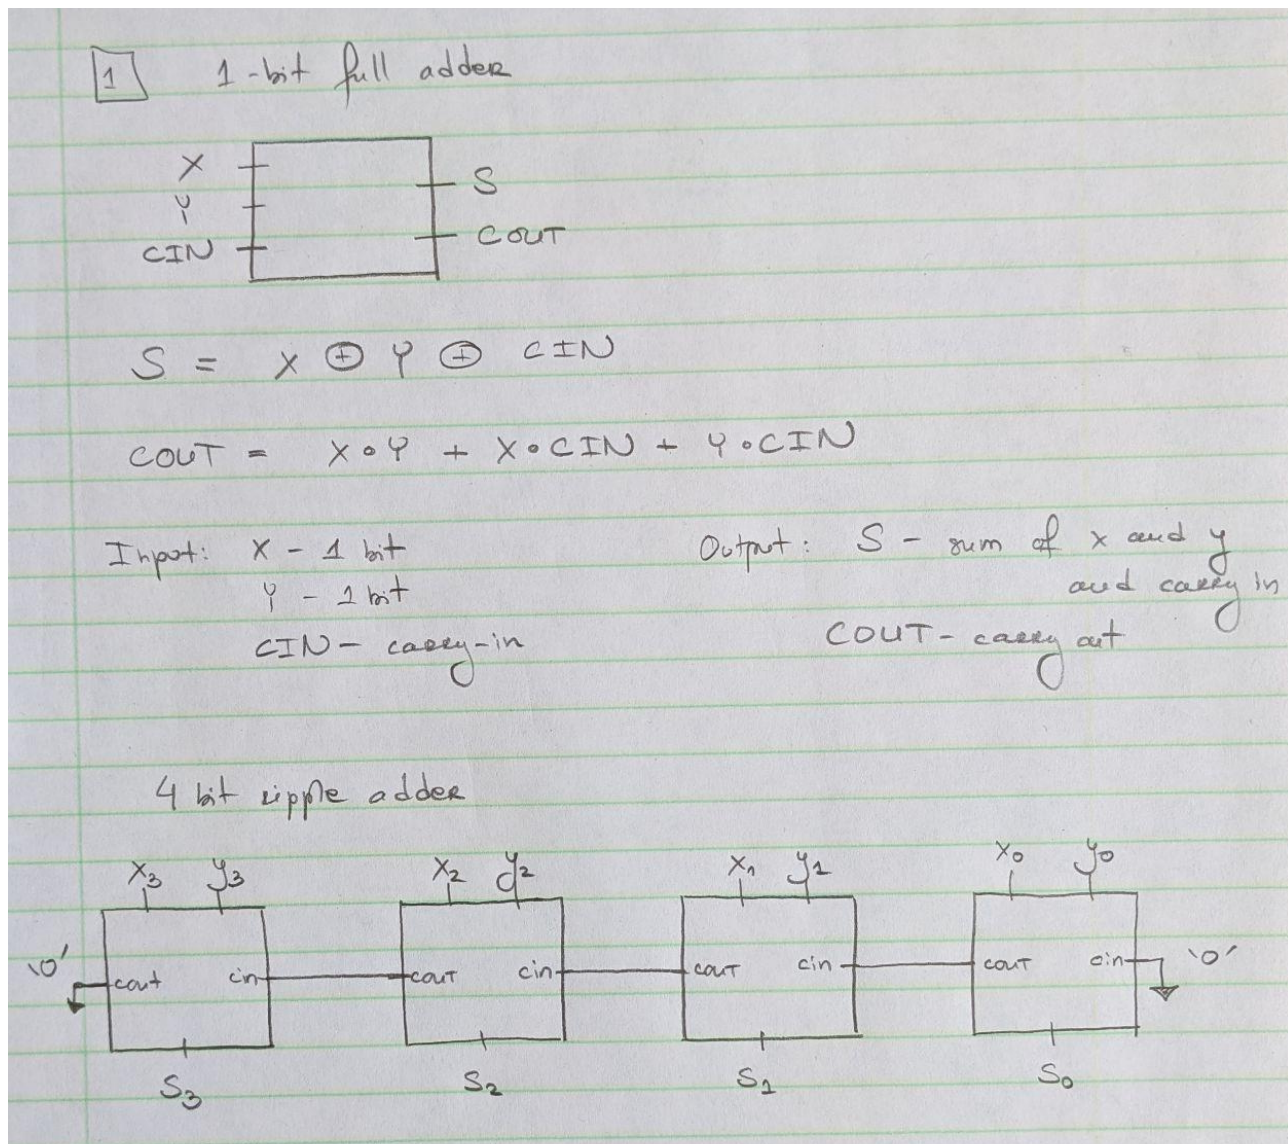 1 1-bit full adder
X
Y
CIN
S
COUT
S = X ⊕ Y ⊕ CIN
COUT = X∘Y + X∘CIN + Y∘CIN
Input: X - 1 bit
Y - 1 bit
CIN - carry-in
Output: S - sum of x and y
and carry in
COUT - carry out
4 bit ripple adder
X₃ y₃ X₂ y₂ X₁ y₁ X₀ y₀
'0' cout cin cout cin cout cin cout cin '0'
S₃ S₂ S₁ S₀